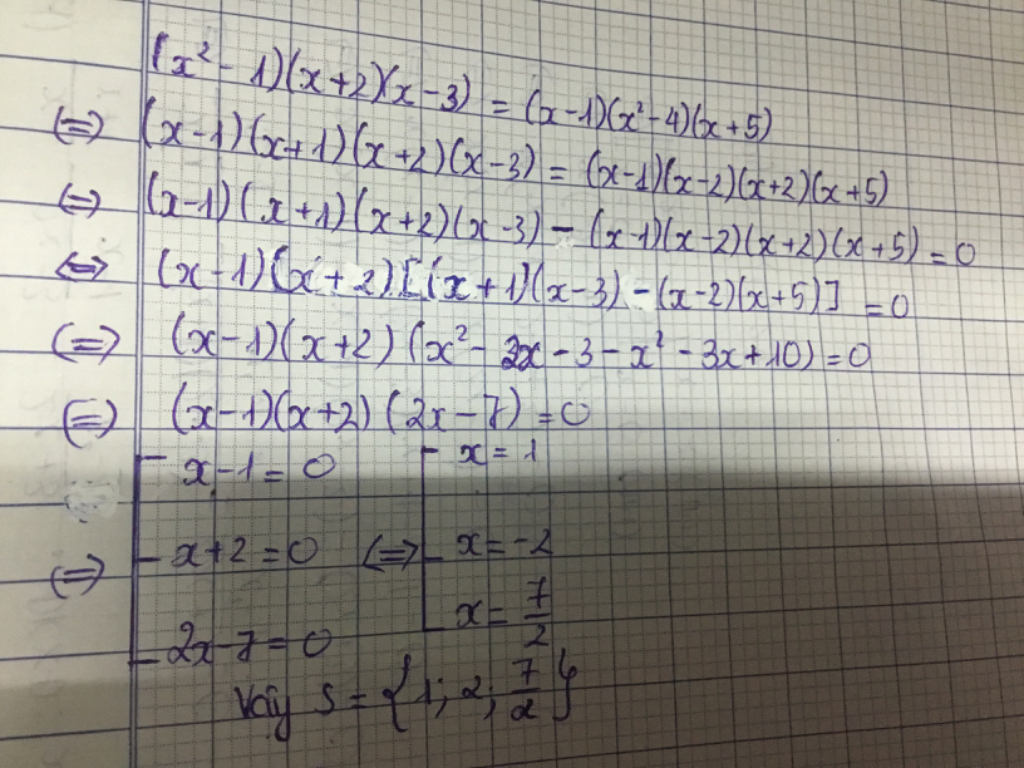 (x² - 1)(x+2)(x-3) = (x-1)(x²-4)(x+5)
(=) (x-1)(x+1)(x+2)(x-3) = (x-1)(x-2)(x+2)(x+5)
(=) (x-1)(x+1)(x+2)(x-3) - (x-1)(x-2)(x+2)(x+5) = 0
(=) (x-1)(x+2)[(x+1)(x-3) - (x-2)(x+5)] = 0
(=) (x-1)(x+2)(x² - 2x - 3 - x² - 3x + 10) = 0
(=) (x-1)(x+2)(2x-7) = 0
x-1 = 0 x = 1
(=) x+2 = 0 (=) x = -2
2x-7 = 0 x = 7/2
Vậy S = {1; 2; 7/2}